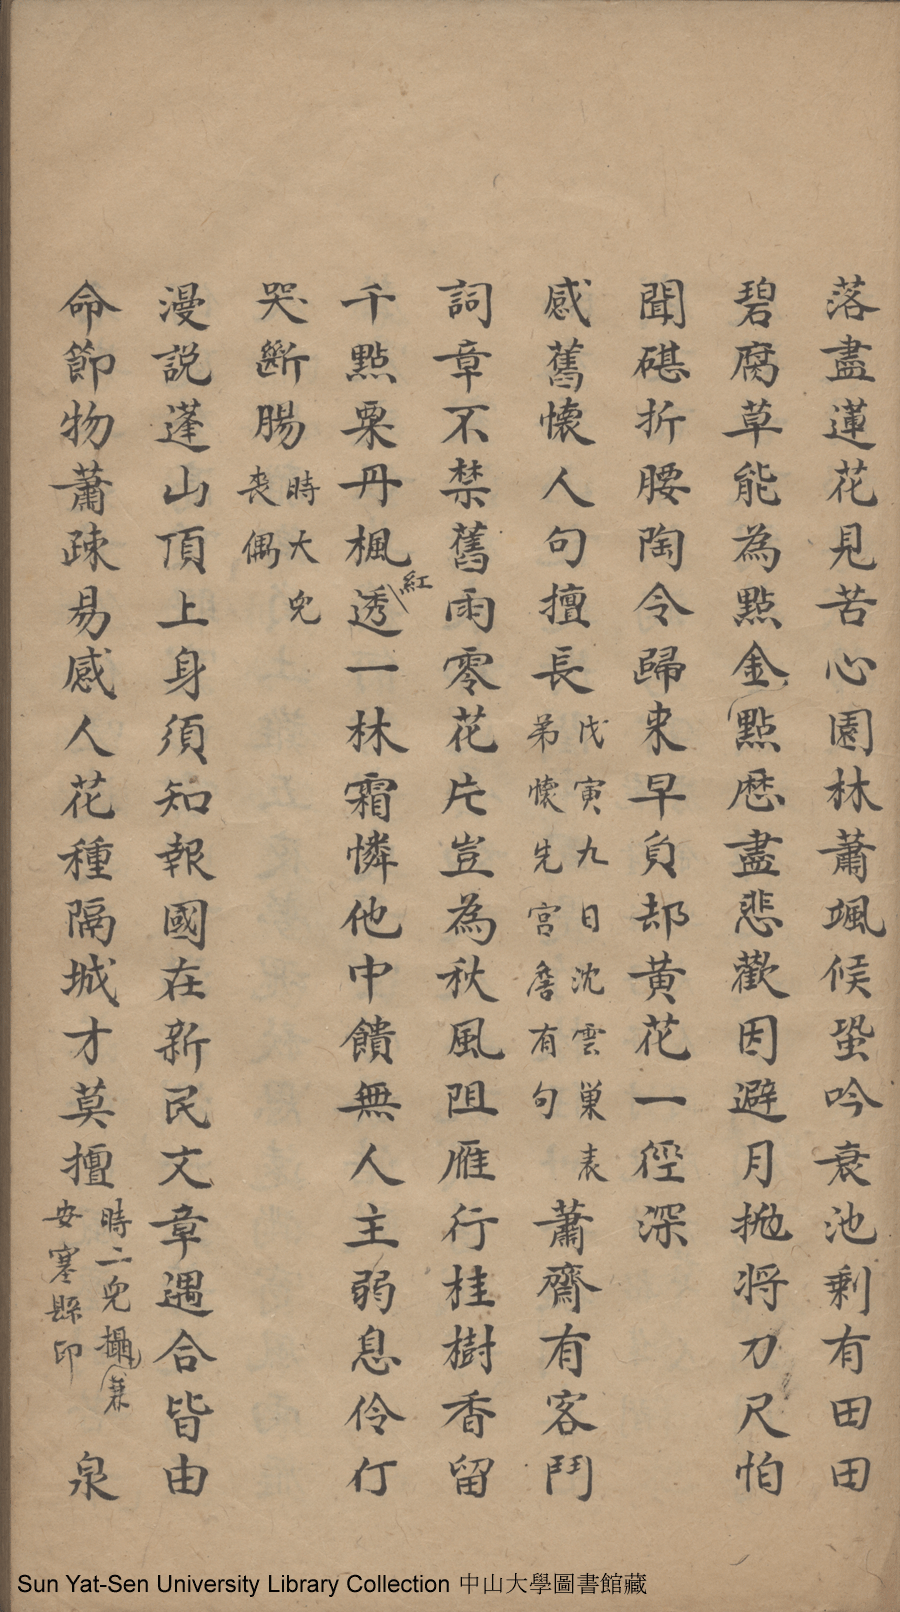 落盡蓮花見苦心園林蕭颯候蛩吟衰池剩有田田
碧腐草能為點金點歷盡悲歡因避月拋將刀尺怕
聞碪折腰陶令歸来早負却黄花一徑深
感舊懷人句擅長戊寅九日沈雲巢表弟懷先宫詹有句蕭齋有客鬥
詞章不禁舊雨零花片豈為秋風阻雁行桂樹香留
千點粟丹楓透紅一林霜憐他中饋無人主弱息伶仃
哭斷腸時大兒喪偶
漫説蓬山頂上身須知報國在新民文章遇合皆由
命節物蕭疎易感人花種隔城才莫擅時二兒攝兼安塞縣印泉
Sun Yat-Sen University Library Collection 中山大學圖書館藏